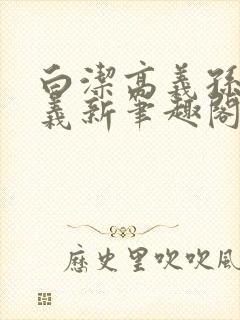 白潔高義孫
義新筆趣閣
歷史里吹吹風